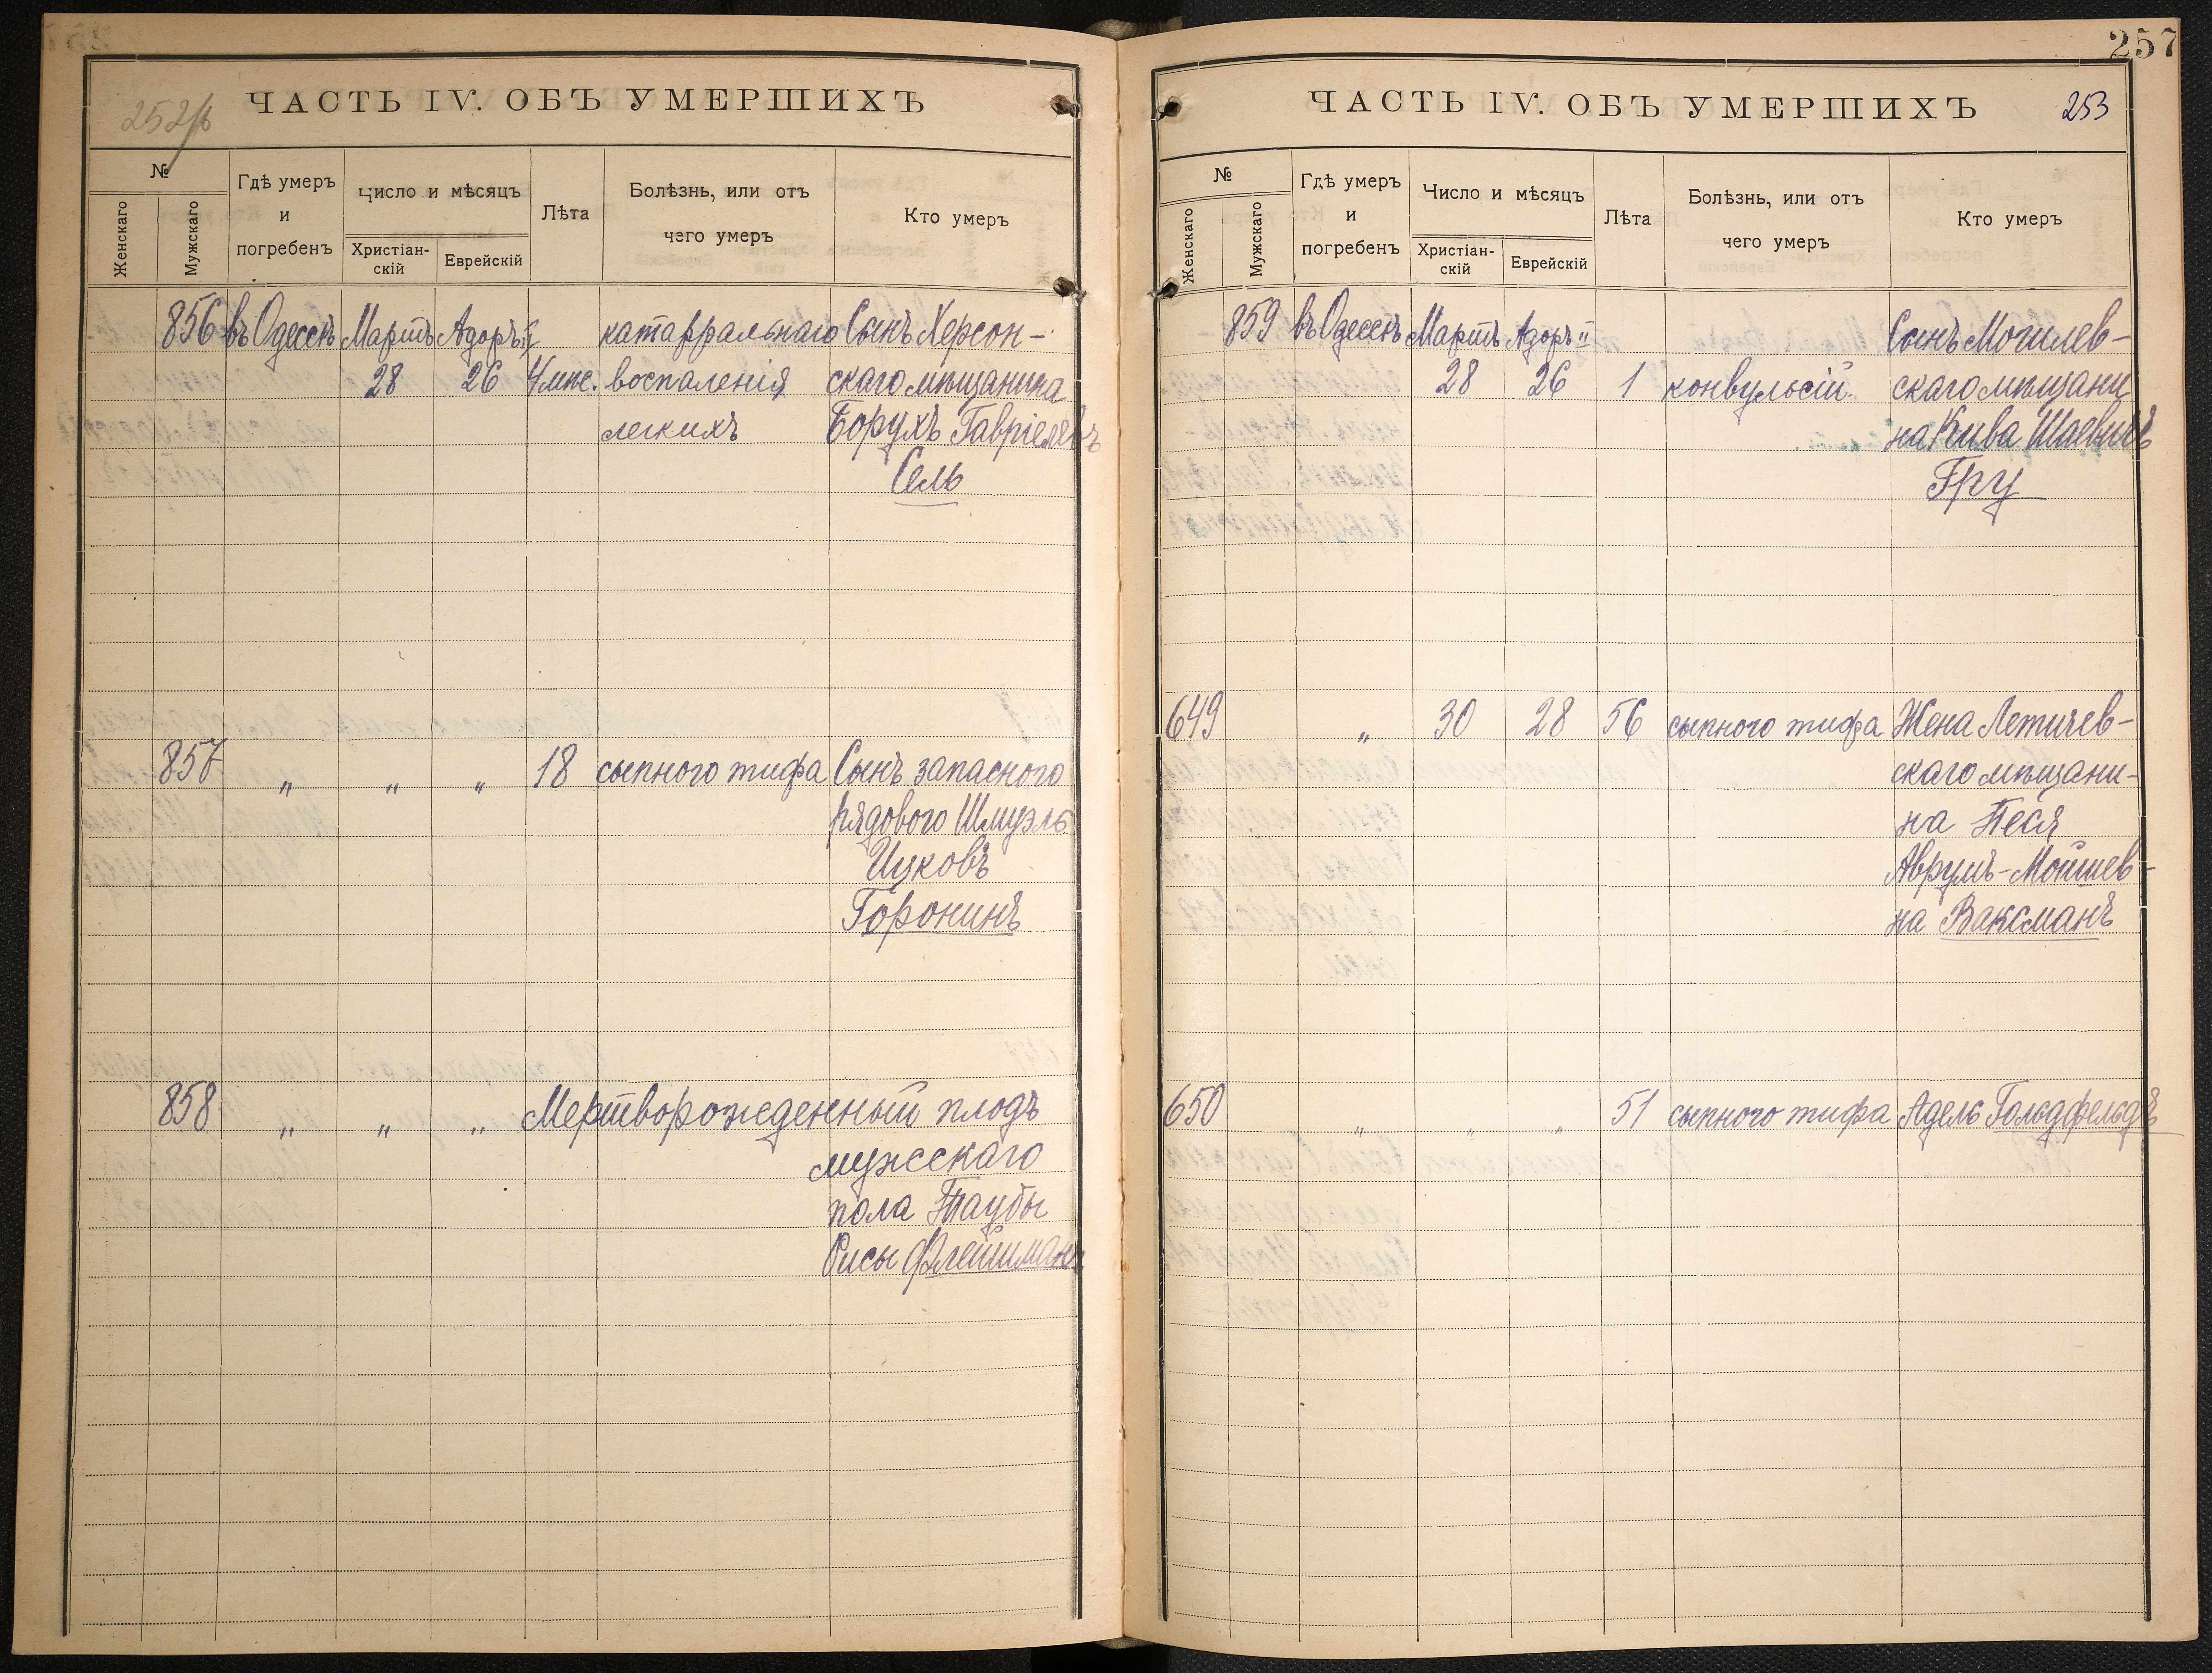 ЧАСТЬ IV. ОБЪ УМЕРШИХЪ
№
Женскаго
Мужскаго
Гдѣ умеръ
и
погребенъ
Число и мѣсяцъ
Христіан-
скій
Еврейскій
Лѣта
Болѣзнь, или отъ
чего умеръ
Кто умеръ
856 въ Одессѣ Мартъ Адоръ II катарральнаго Сынъ Херсон-
28 26 4 мѣс. воспаленія скаго мѣщанина
легкихъ Борухъ Гавріелевъ
Сель
857 " " " 18 сыпного тифа Сынъ запаснаго
рядового Шмуэль
Ицковъ
Горонинъ
858 " " " Мертворожденный плодъ
мужескаго
пола Таубы
Рисы Флейшманъ
257
ЧАСТЬ IV. ОБЪ УМЕРШИХЪ 253
№
Женскаго
Мужскаго
Гдѣ умеръ
и
погребенъ
Число и мѣсяцъ
Христіан-
скій
Еврейскій
Лѣта
Болѣзнь, или отъ
чего умеръ
Кто умеръ
859 въ Одессѣ Мартъ Адоръ II Сынъ Могилев-
28 26 1 конвульсій. скаго мѣщани
на Кива Шаевичъ
Гру
649 " 30 28 56 сыпного тифа Жена Летичев-
скаго мѣщани-
на Песя
Аврумъ-Мойшев-
на Ваксманъ
650 " " " 51 сыпного тифа Адель Гольдфельдъ